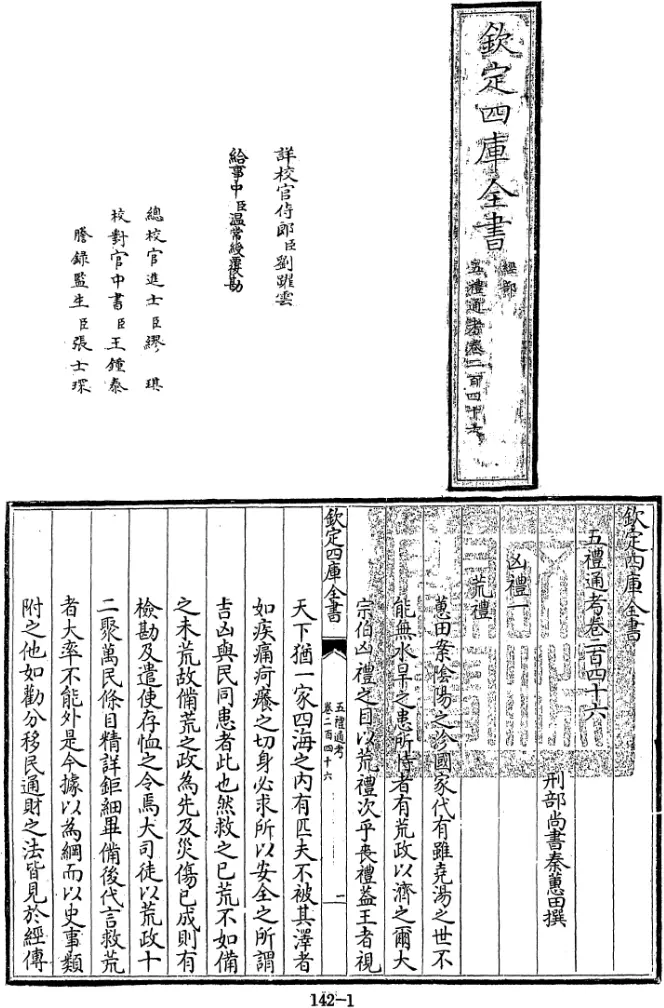 欽定四庫全書
經部
五禮通考卷二百四十六
詳校官侍郎臣劉躍雲
給事中臣温常綬覆勘
總校官進士臣繆琪
校對官中書臣王鍾泰
謄錄監生臣張士琛
欽定四庫全書
五禮通考卷二百四十六
刑部尚書秦蕙田撰
凶禮一
荒禮
蕙田案陰陽之沴國家代有雖堯湯之世不
能無水旱之患所恃者有荒政以濟之爾大
宗伯凶禮之目以荒禮次乎喪禮葢王者視
天下猶一家四海之内有匹夫不被其澤者
如疾痛疴癢之切身必求所以安全之所謂
吉凶與民同患者此也然救之已荒不如備
之未荒故備荒之政為先及災傷已成則有
檢勘及遣使存恤之令焉大司徒以荒政十
二聚萬民條目精詳鉅細畢備後代言救荒
者大率不能外是今據以為綱而以史事類
附之他如勸分移民通財之法皆見於經傳
欽定四庫全書
五禮通考
卷二百四十六
一
142-1